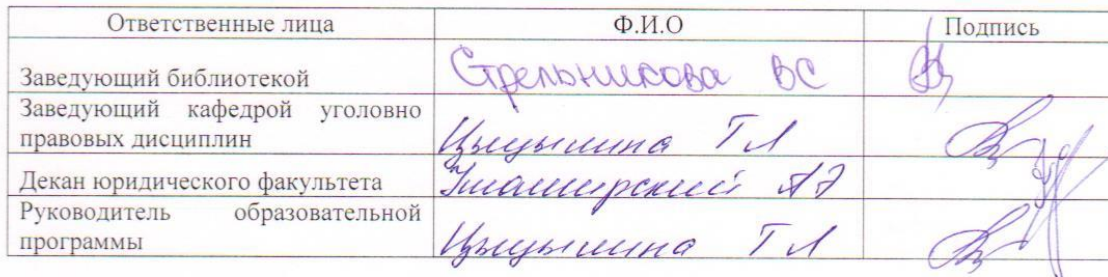 Ответственные лица Ф.И.О Подпись
Заведующий библиотекой Стрельникова ВС
Заведующий кафедрой уголовно
правовых дисциплин Т Л
Декан юридического факультета АЭ
Руководитель образовательной
программы Т Л